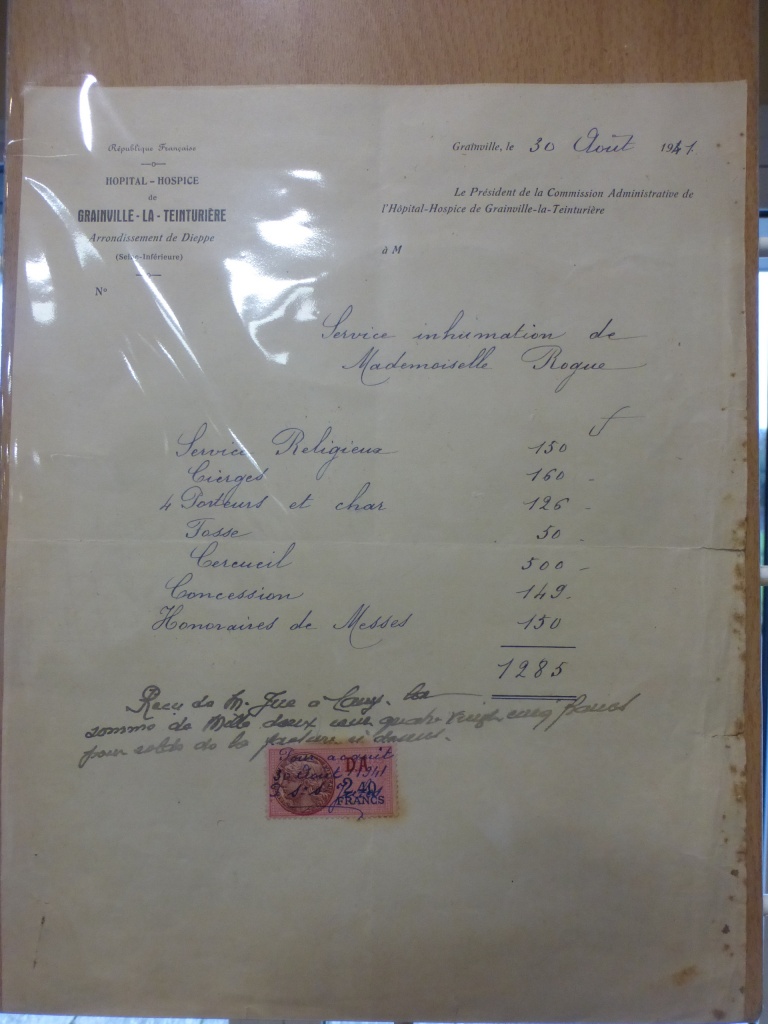 République Française
HOPITAL - HOSPICE
de
GRAINVILLE - LA - TEINTURIÈRE
Arrondissement de Dieppe
(Seine-Inférieure)
N°
Grainville, le 30 Août 1941
Le Président de la Commission Administrative de
l'Hôpital-Hospice de Grainville-la-Teinturière
à M
Service inhumation de
Mademoiselle Rogue
f
Service Religieux 150
Cierges 160 -
4 Porteurs et char 126 -
Fosse 50 -
Cercueil 500 -
Concession 149 -
Honoraires de Messes 150
1285
Reçu de M. Jue à Cany la
somme de Mille deux cent quatre vingt cinq francs
pour solde de la facture ci dessus.
Pour acquit
30 Août 1941
DA
2,40
FRANCS